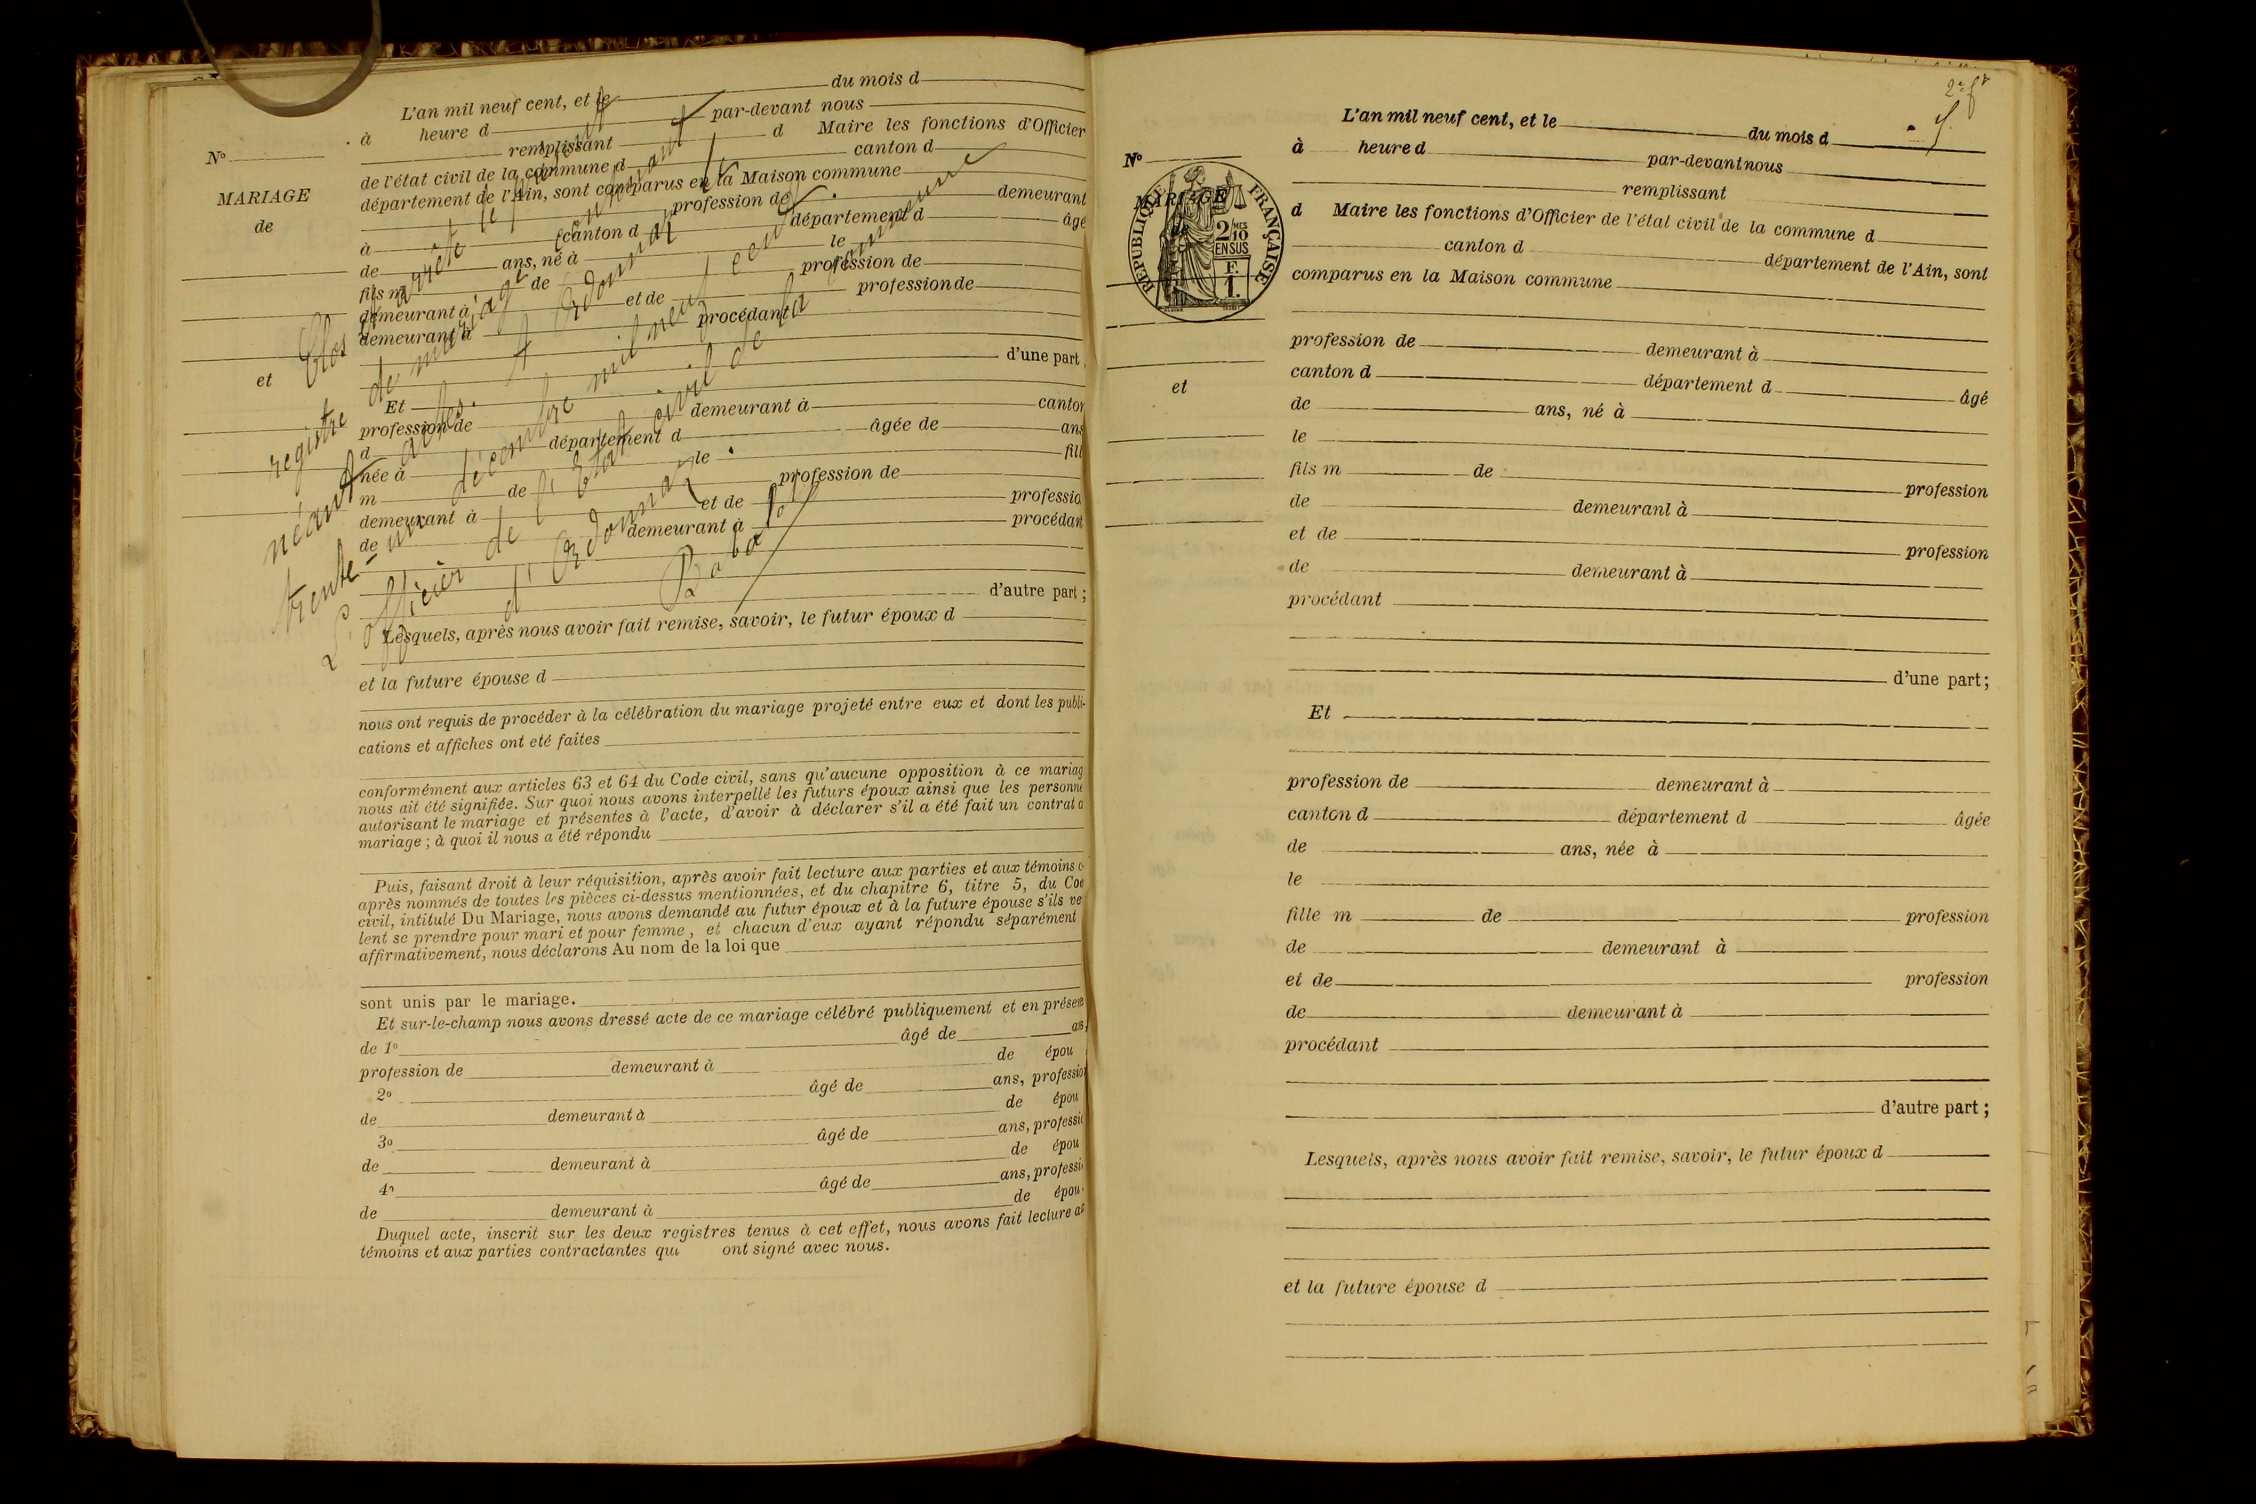 L'an mil neuf cent, et le du mois d
à heure d par-devant nous
remplissant d Maire les fonctions d'Officier
de l'état civil de la commune d canton d
département de l'Ain, sont comparus en la Maison commune
profession de demeurant
à canton d département d âgé
de ans, né à le
fils m de profession de
demeurant à et de profession de
demeurant à procédant
d'une part
Et
profession de demeurant à canton
d département d âgée de ans
née à le fill
m de profession de
demeurant à et de professio
de demeurant à procédant
d'autre part ;
Lesquels, après nous avoir fait remise, savoir, le futur époux d
et la future épouse d
nous ont requis de procéder à la célébration du mariage projeté entre eux et dont les publi-
cations et affiches ont eté faites
conformément aux articles 63 et 64 du Code civil, sans qu'aucune opposition à ce mariag
nous ait été signifiée. Sur quoi nous avons interpellé les futurs époux ainsi que les personne
autorisant le mariage et présentes à l'acte, d'avoir à déclarer s'il a été fait un contrat d
mariage ; à quoi il nous a été répondu
Puis, faisant droit à leur réquisition, après avoir fait lecture aux parties et aux témoins c
après nommés de toutes les pièces ci-dessus mentionnées, et du chapitre 6, titre 5, du Cod
civil, intitulé Du Mariage, nous avons demandé au futur époux et à la future épouse s'ils ve
lent se prendre pour mari et pour femme, et chacun d'eux ayant répondu séparément
affirmativement, nous déclarons Au nom de la loi que
sont unis par le mariage.
Et sur-le-champ nous avons dressé acte de ce mariage célébré publiquement et en présen
de 1º âgé de ans
profession de demeurant à de épou
2º âgé de ans, profession
de demeurant à de épou
3º âgé de ans, professio
de demeurant à de épou
4º âgé de ans, professi
de demeurant à de épou
Duquel acte, inscrit sur les deux registres tenus à cet effet, nous avons fait lecture au
témoins et aux parties contractantes qui ont signé avec nous.
Nº
MARIAGE
de
et
Clos et arrêté le présent
registre de mariage contenant
néant actes. A Ordonnaz, le
trente-un décembre mil neuf cent.
L'officier de l'Etat civil de la commune
d'Ordonnaz.
2e ft
Nº
MARIAGE
RÉPUBLIQUE FRANÇAISE
2 MES
10
EN SUS
F.
1.
et
L'an mil neuf cent, et le du mois d
à heure d par-devant nous
remplissant
d Maire les fonctions d'Officier de l'état civil de la commune d
canton d département de l'Ain, sont
comparus en la Maison commune
profession de demeurant à
canton d département d âgé
de ans, né à
le
fils m de profession
de demeurant à
et de profession
de demeurant à
procédant
d'une part ;
Et
profession de demeurant à
canton d département d âgée
de ans, née à
le
fille m de profession
de demeurant à
et de profession
de demeurant à
procédant
d'autre part ;
Lesquels, après nous avoir fait remise, savoir, le futur époux d
et la future épouse d